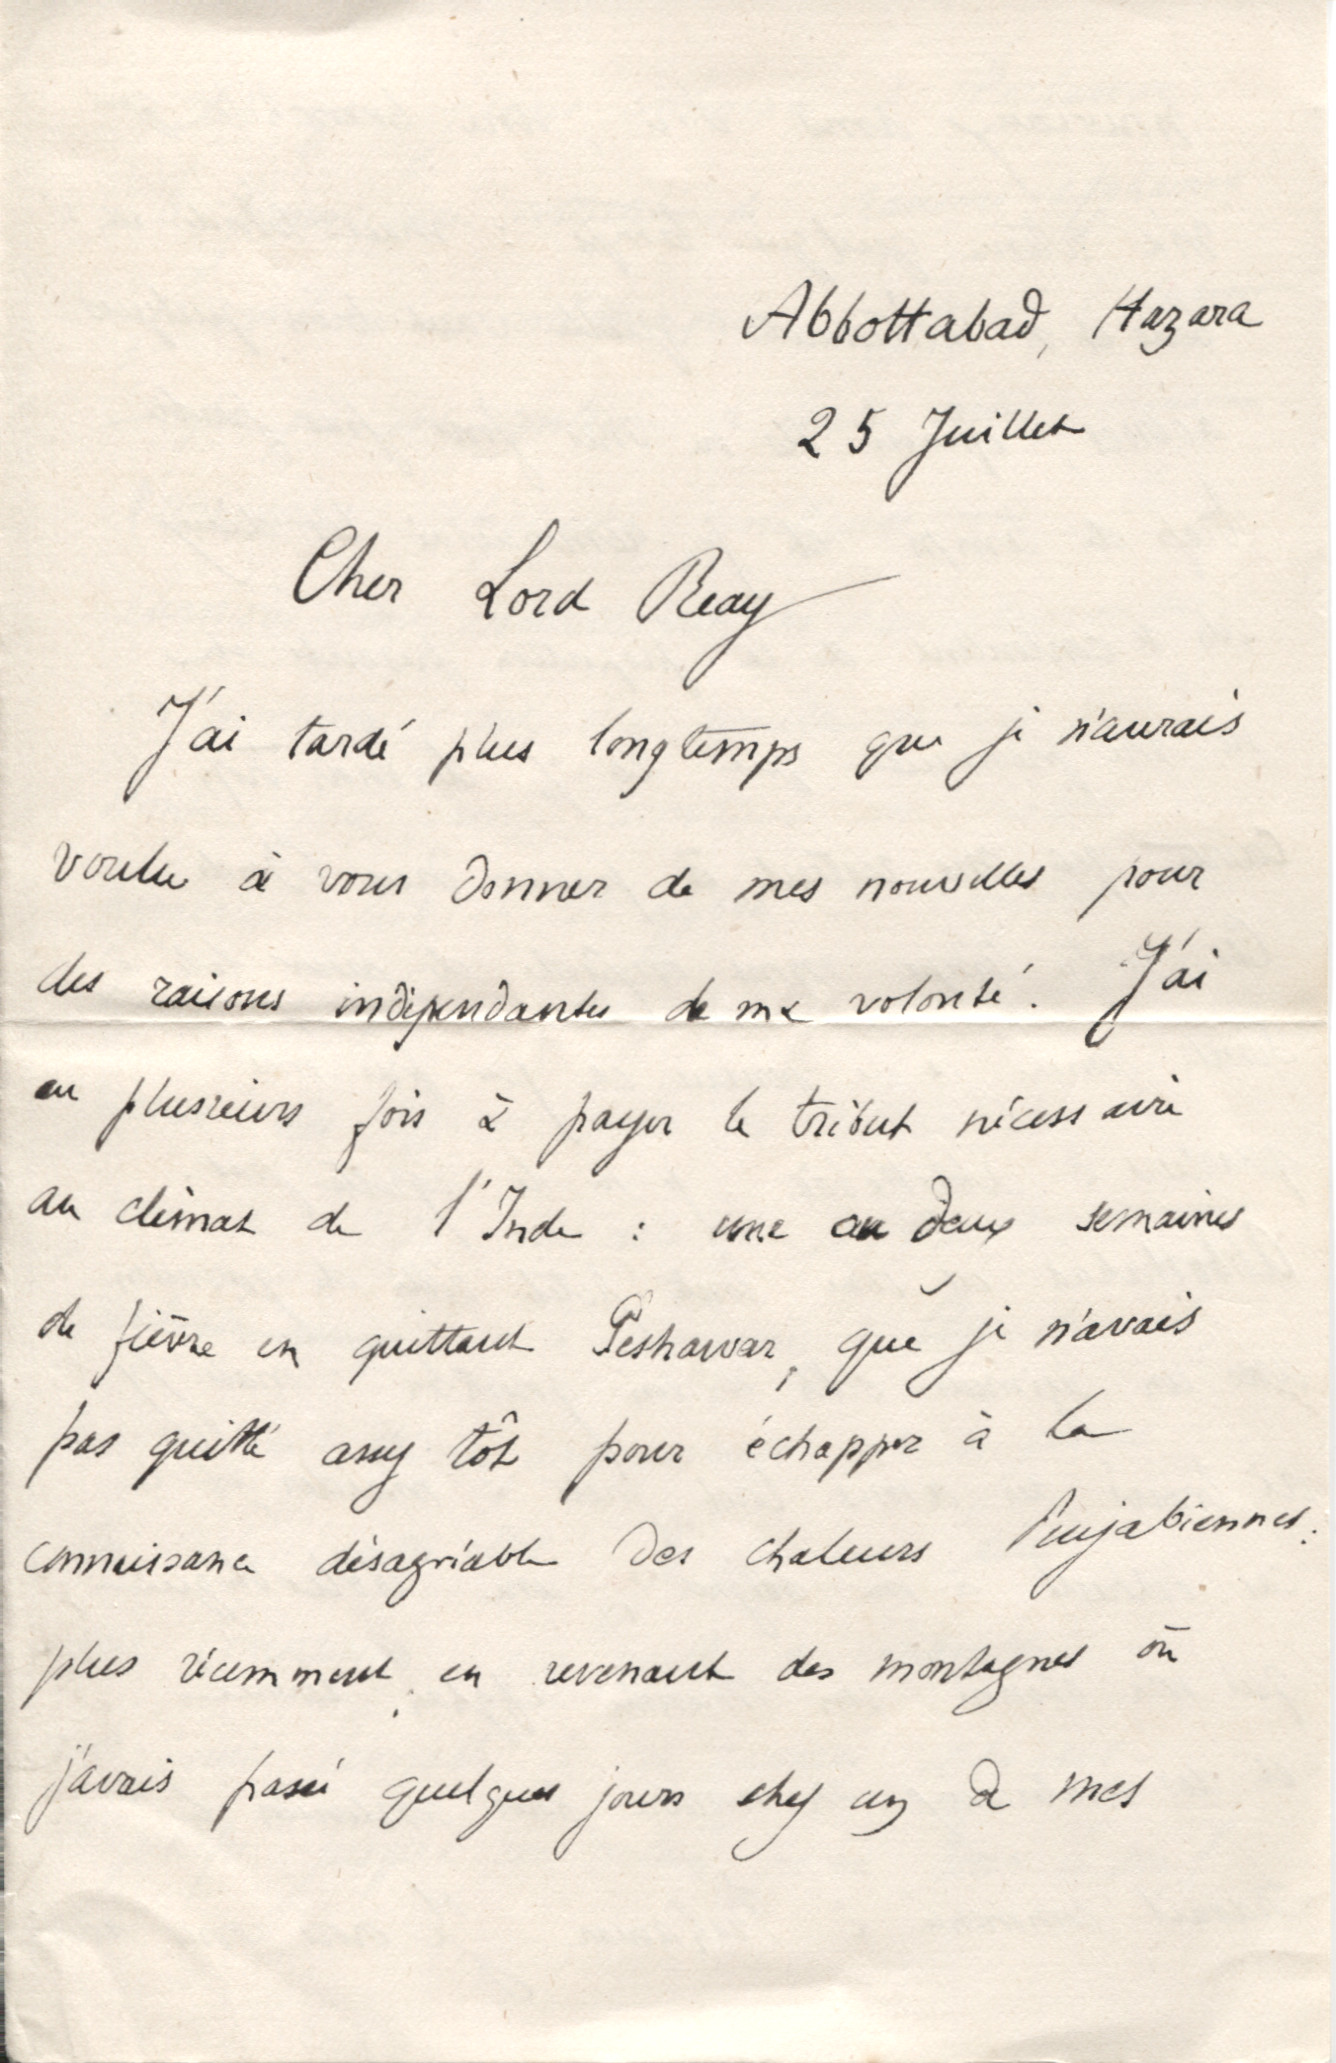 Abbottabad, Hazara
25 Juillet
Cher Lord Reay
J'ai tardé plus longtemps que je n'aurais
voulu à vous donner de mes nouvelles pour
des raisons indépendantes de ma volonté. J'ai
eu plusieurs fois à payer le tribut nécessaire
au climat de l'Inde : une ou deux semaines
de fièvre en quittant Peshawar, que je n'avais
pas quitté assez tôt pour échapper à la
connaissance désagréable des chaleurs Penjabiennes :
plus récemment, en revenant des montagnes où
j'avais passé quelques jours chez un de mes